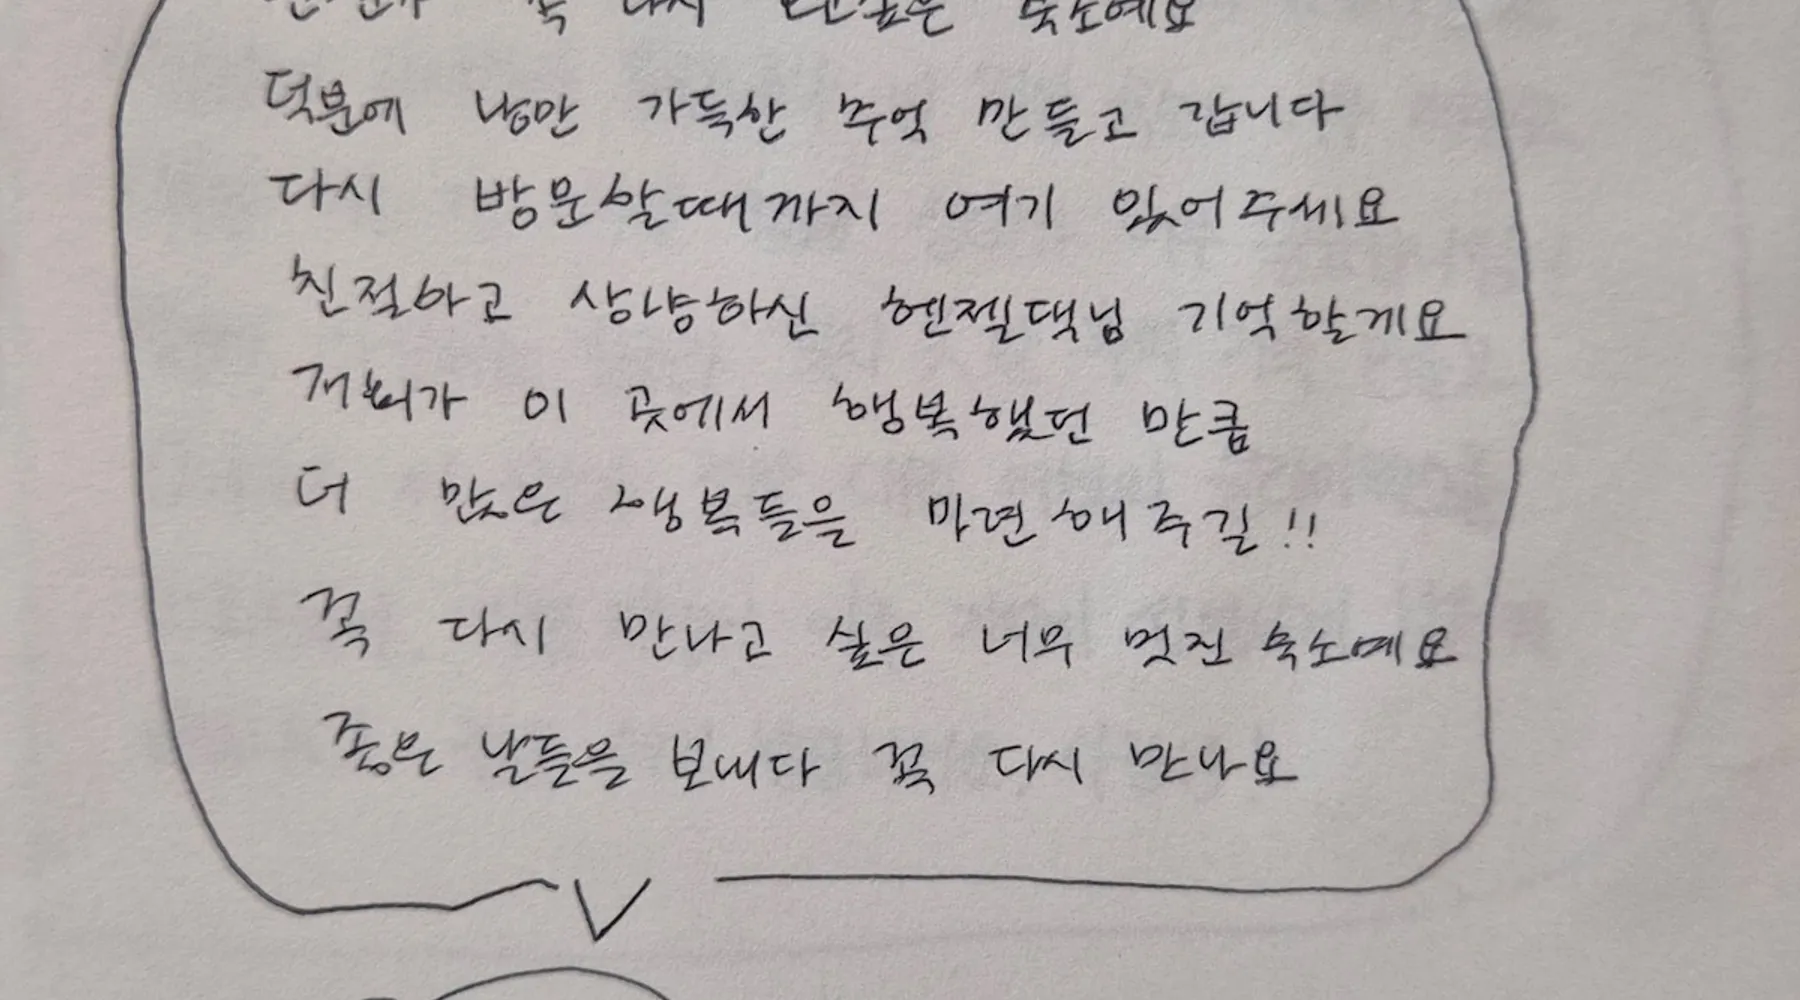 꼭 다시 오고싶은 숙소예요
덕분에 낭만 가득한 추억 만들고 갑니다
다시 방문할때까지 여기 있어주세요
친절하고 상냥하신 헨젤댁님 기억할게요
저희가 이 곳에서 행복했던 만큼
더 많은 행복들을 마련해주길!!
꼭 다시 만나고 싶은 너무 멋진 숙소예요
좋은 날들을 보내다 꼭 다시 만나요